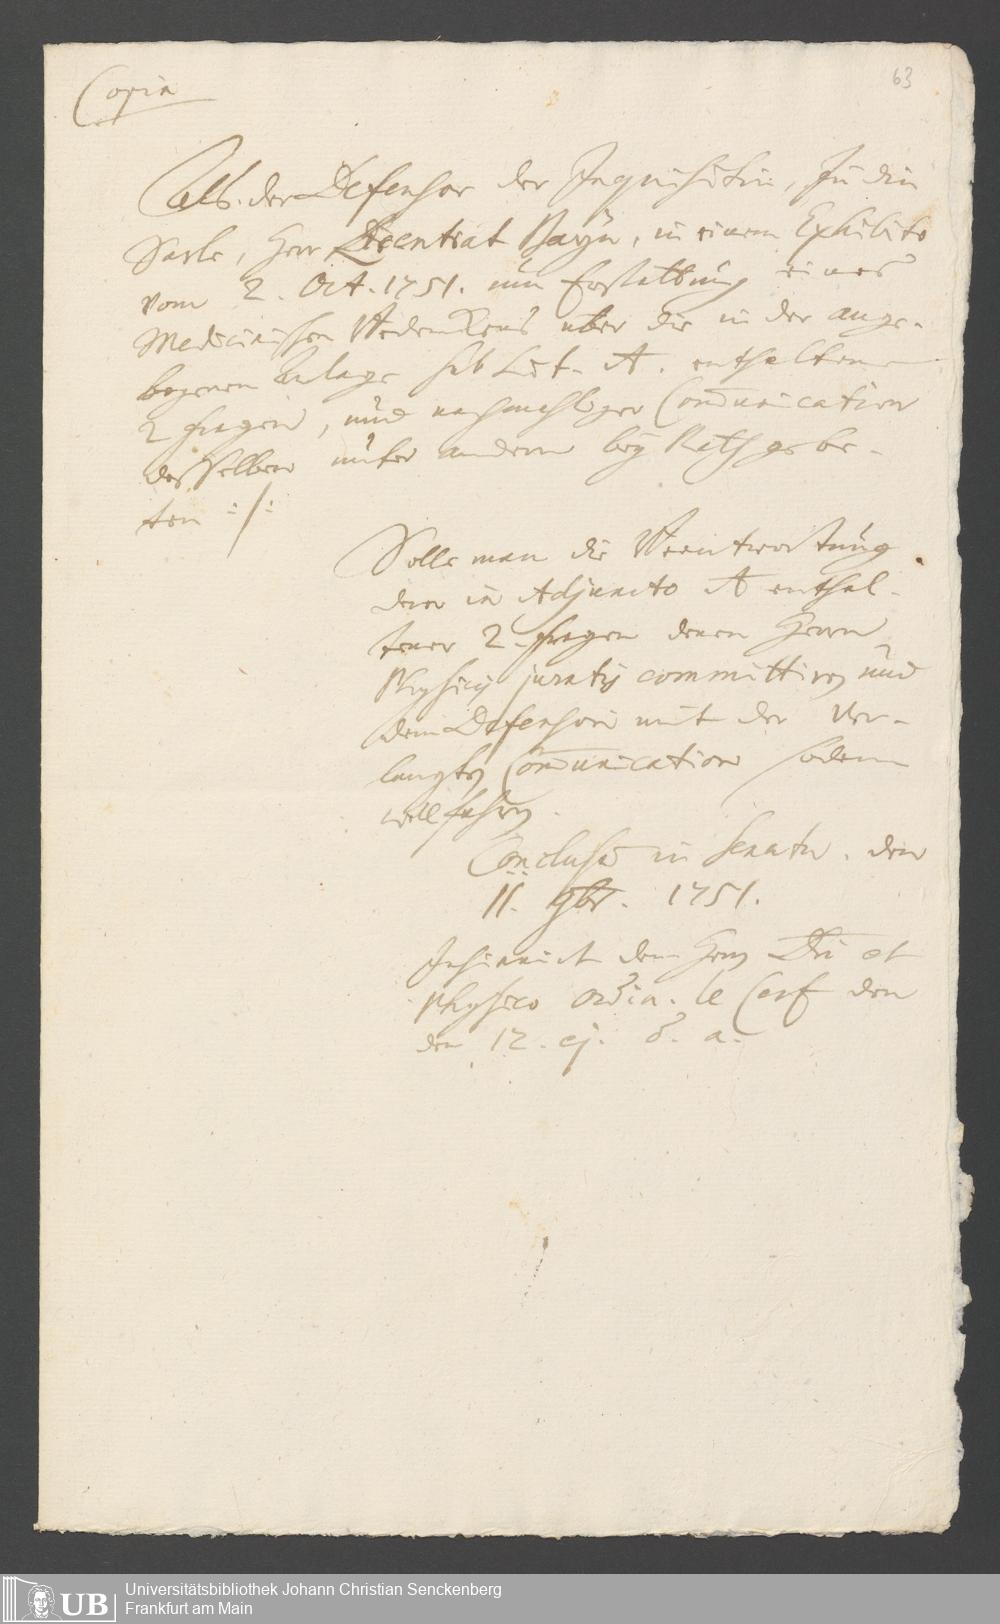 63
Copia
Als der Defensor der Inquisitin, Jüdin
Sarle, Herr Licentiat Bayn, in einem Exhibito
vom 2. Oct. 1751. um Erstattung eines
Medicinischen Bedenckens über die in der ange-
bogenen Anlage sub Lit. A. enthaltene
2 fragen, und nachmahliger Com̄unication
desselben unter andern bey Rath gebe-
ten :/:
Solle man die Beantwortung
derer in Adjuncto A enthal-
tener 2. fragen denen Herren
Physicis juratis committiren und
dem Defensori mit der ver-
langten Com̄unication sodann
willfahren.
Conclusū in Senatu. den
11. 9br. 1751.
Insinuirt dem Herrn Dri et
Physico Ordin. le Cerf den
den 12. ej. & a.
Universitätsbibliothek Johann Christian Senckenberg
Frankfurt am Main
UB